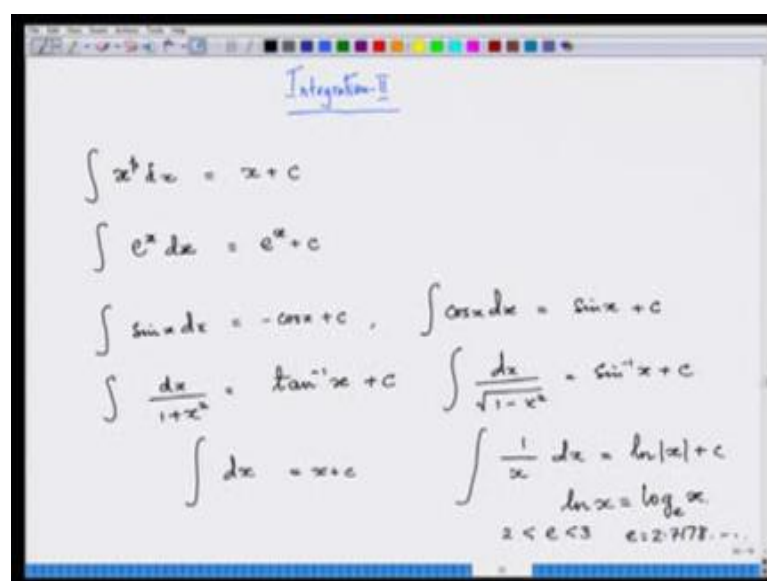 Integration-II
∫ x^p dx = x + c
∫ e^x dx = e^x + c
∫ sin x dx = - cos x + c , ∫ cos x dx = sin x + c
∫ dx / 1+x² = tan⁻¹ x + c ∫ dx / √1-x² = sin⁻¹ x + c
∫ dx = x + c ∫ 1/x dx = ln |x| + c
ln x = log_e x
2 < e < 3 e = 2.7178.....